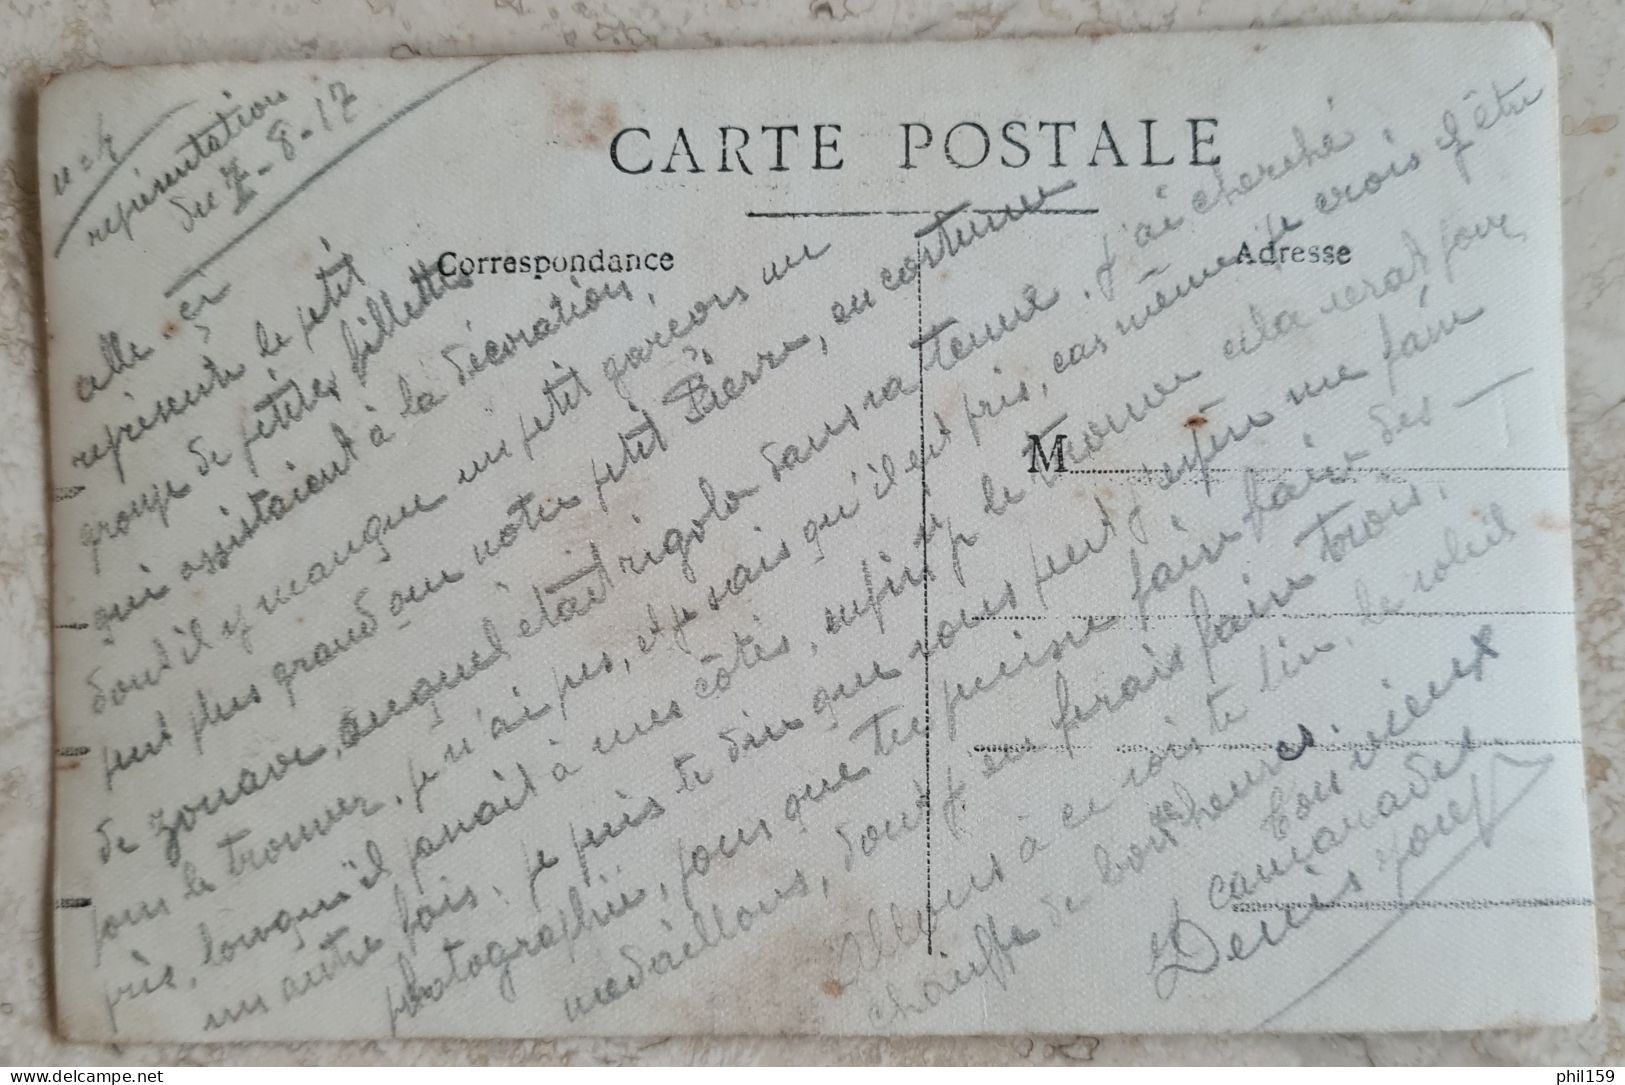 représentation
du 7-8-17
CARTE POSTALE
Correspondance
Adresse
M
celle-ci
représente le petit
groupe de petites fillettes
qui assistaient à la décoration,
dont il y manque un petit garçons un
peut plus grand que notre petit Pierre, en costume
de zouave, auquel était rigolo dans sa tenue. J'ai cherché
pour le trouver, je n'ai pus, et je sais qu'il est pris, cas même je crois j'êtu
pris, lorsqu'il panait à mes côtés, enfin si je le trouve cela serat pour
un autre fois. je puis te dire que sous peut j'espère me faire
photographié, pour que tu puisse faire faire des
medaillons, dont j'en ferais faire trois.
Allons à ce soiste lin, le soleil
chauffe de bonheures.
ton vieux
camarade.
Denis Josef
delcampe.net
phil159